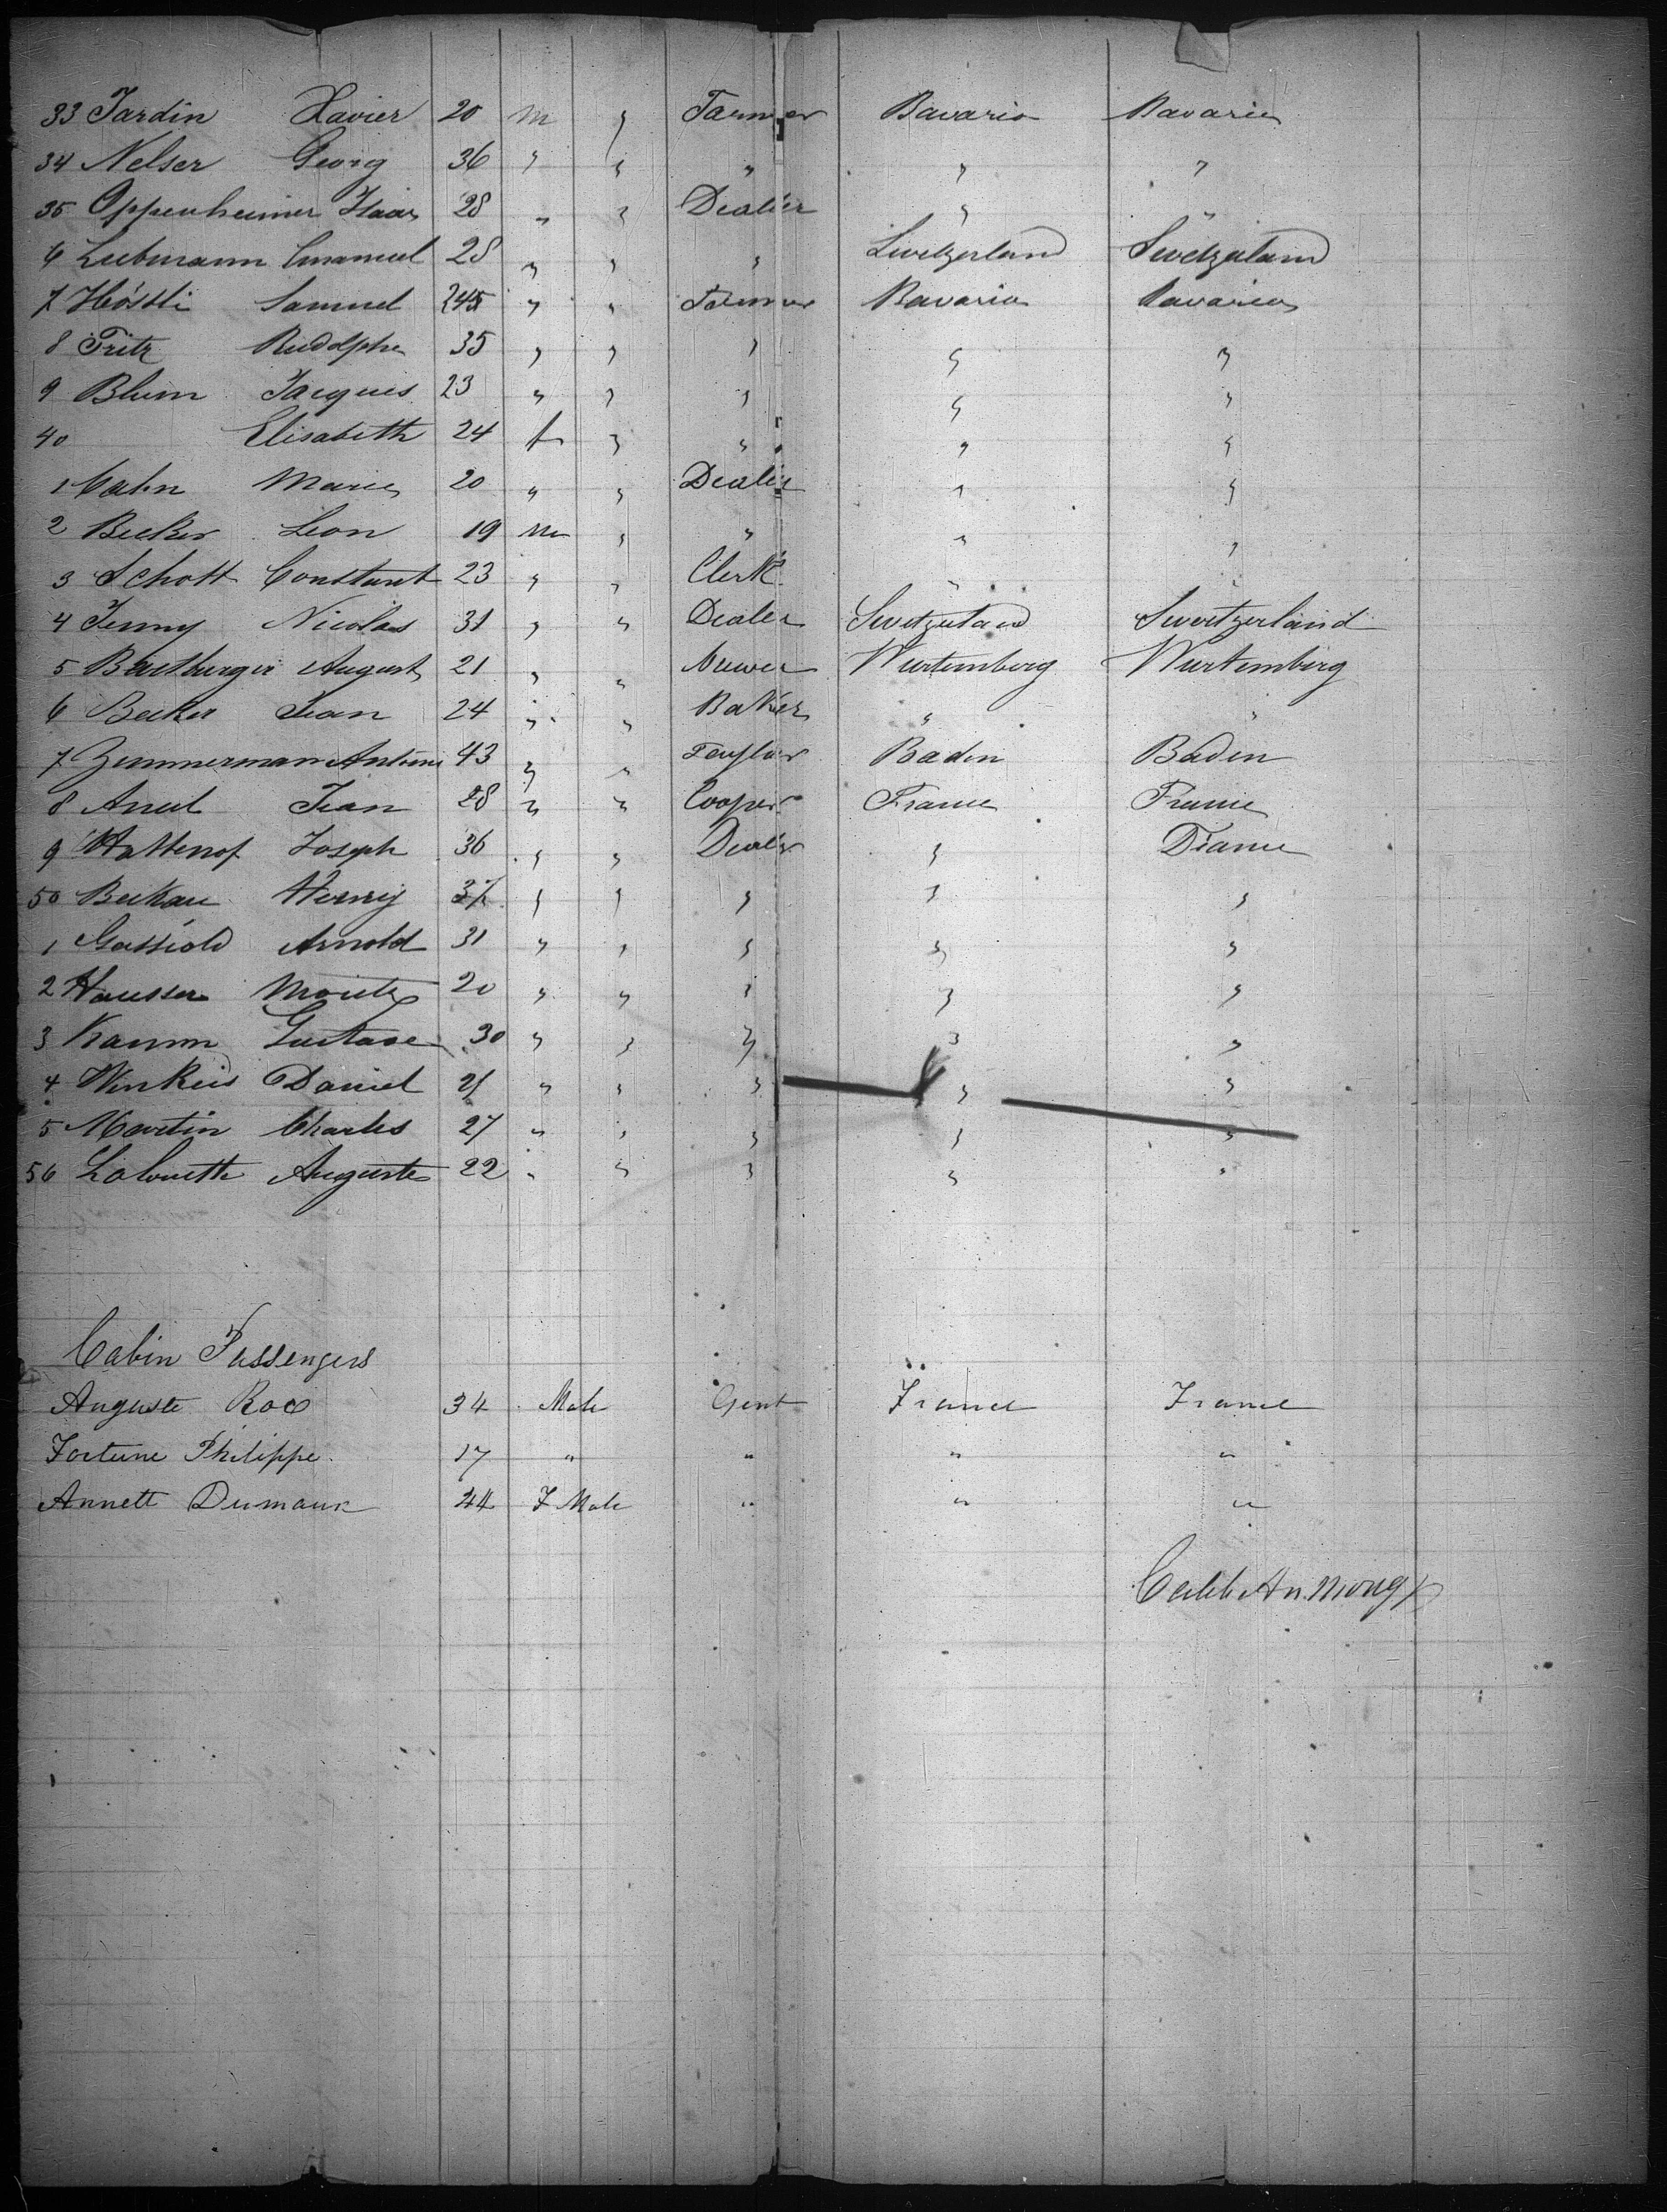 33 Jardin Xavier 20 m " Farmer Bavaria Bavaria
34 Nelser Georg 36 " " " " "
35 Oppenheimer Isaac 28 " " Dealer " "
6 Liebmann Emanuel 28 " " " Switzerland Switzerland
7 Höstli Samuel 245 " " Farmer Bavaria Bavaria
8 Fritz Rudolphe 35 " " " " "
9 Blum Jacques 23 " " " " "
40 Elisabeth 24 f " " " "
1 Cahn Marie 20 " " Dealer " "
2 Becker Leon 19 m " " " "
3 Schott Constant 23 " " Clerk " "
4 Jenny Nicolas 31 " " Dealer Switzerland Switzerland
5 August 21 " " Wurtemberg Wurtemberg
6 Becker Jean 24 " " Baker " "
7 Zimmerman Antoine 43 " " Taylor Baden Baden
8 Jean 28 " " Cooper France France
9 Joseph 36 " " Dealer " France
50 Henry 37 " " " " "
1 Arnold 31 " " " " "
2 Hausser Moritz 20 " " " " "
3 Kamm Gustave 30 " " " " "
4 Daniel 21 " " " " "
5 Martin Charles 27 " " " " "
56 Lalouette Auguste 22 " " " " "
Cabin Passengers
Auguste Roo 34 Male Gent France France
Fortune Philippe 17 " " " "
Annett Dumaux 44 F Male " " "